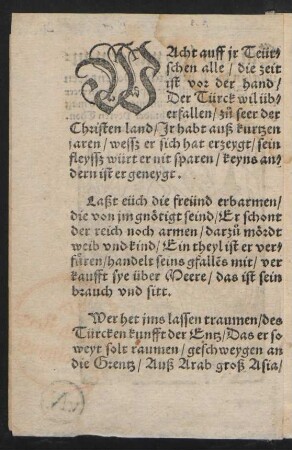 WAcht auff jr Teüt⸗
schen alle / die zeit
ist vor der hand /
Der Türck wil üb⸗
erfallen / zů seer der
Christen land / Jr habt auß kurtzen
jaren / wessz er sich hat erzeygt / sein
fleyssz würt er nit sparen / keyns an⸗
dern ist er geneygt.
Laßt eüch die freünd erbarmen /
die von jm gnötigt seind / Er schont
der reich noch armen / darzů mördt
weib vnd kind / Ein theyl ist er ver⸗
fůren / handelt seins gfallẽs mit / ver
kaufft sye über Meere / das ist sein
brauch vnd sitt.
Wer het jms lassen traumen / des
Türcken kunfft der Entz / Das er so
weyt solt raumen / geschweygen an
die Grentz / Auß Arab groß Asia /